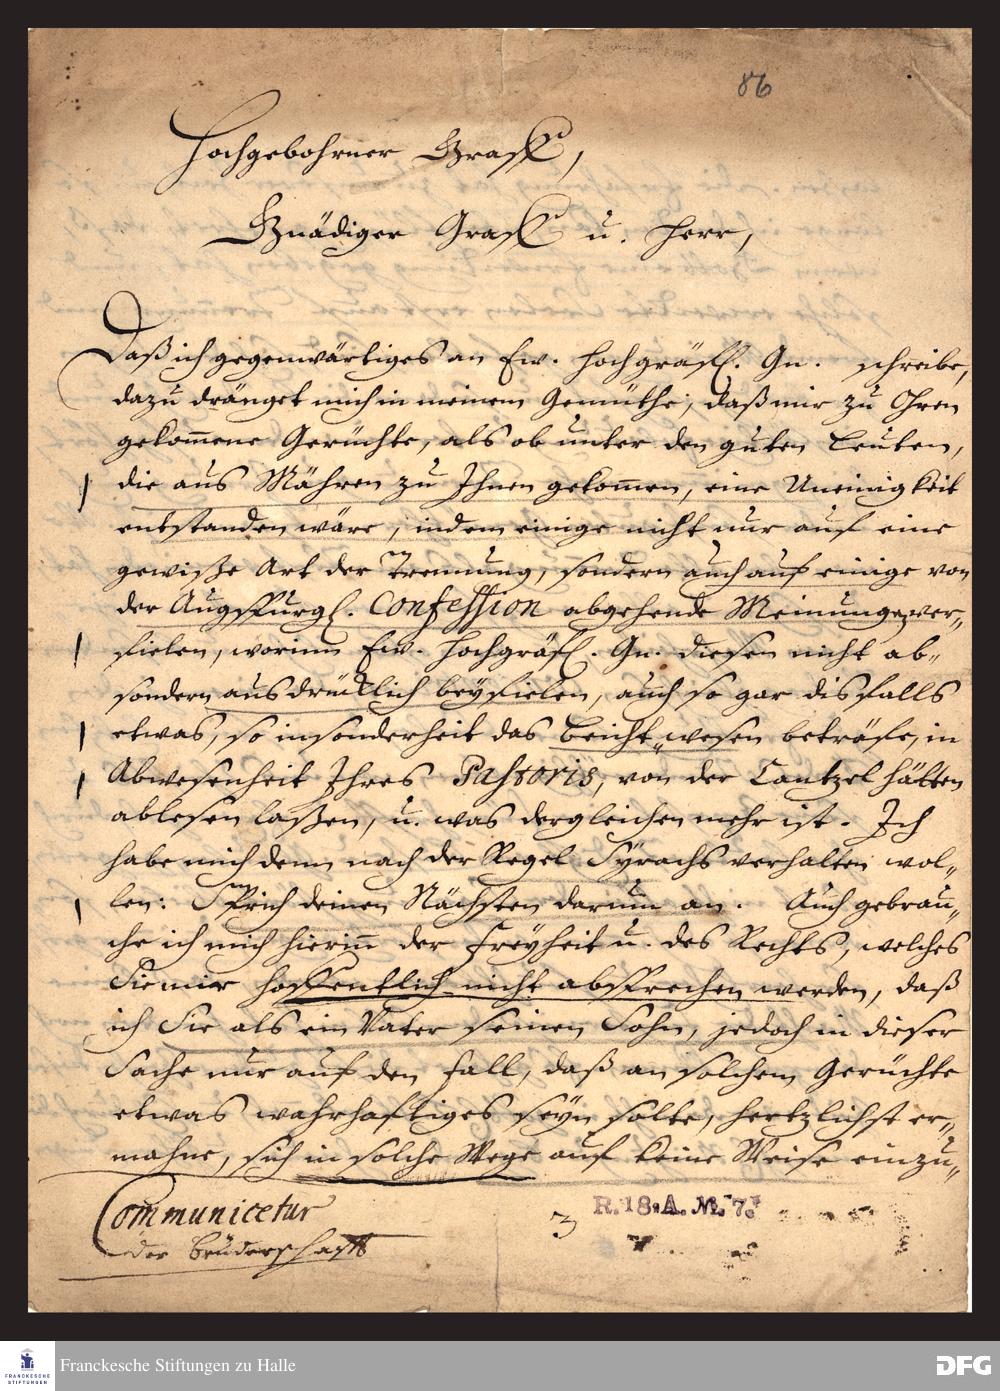 86
Hochgebohrner Graff,
Gnädiger Graff u. Herr,
Daß ich gegenwärtiges an Ew. Hochgräfl. Gn. schreibe,
dazu dränget mich in meinem Gemüthe, daß mir zu Ohren
gekom̄ene Gerüchte, als ob unter den guten Leuten,
die aus Mähren zu Ihnen gekom̄en, eine Uneinigkeit
entstanden wäre, indem einige nicht nur auf eine
gewiße Art der Trennung, sondern auch auf einige von
der Augspurgl. Confession abgehende Meinungen ver„
fielen, worinn Ew. Hochgräfl. Gn. diesen nicht ab„
sondern ausdrücklich beyfielen, auch so gar disfalls
etwas, so insonderheit das Beicht„wesen beträfe, in
Abwesenheit Ihres Pastoris, von der Cantzel hätten
ablesen laßen, u. was dergleichen mehr ist. Ich
habe mich denn nach der Regel Syrachs verhalten wol„
len: Sprich deinen Nächsten darum an. Auch gebrau„
che ich mich hierin̄ der Freyheit u. des Rechts, welches
Sie mir hoffentlich nicht absprechen werden, daß
ich Sie als ein Vater seinen Sohn, jedoch in dieser
Sache nur auf den Fall, daß an solchem Gerüchte
etwas wahrhafftiges seyn solte, hertzlichst er„
mahne, sich in solche Wege auf keine Weise einzu„
Communicetur
der Brüderschafft
3
R. 18. A. № 7.
Franckesche Stiftungen zu Halle
FRANCKESCHE
STIFTUNGEN
DFG